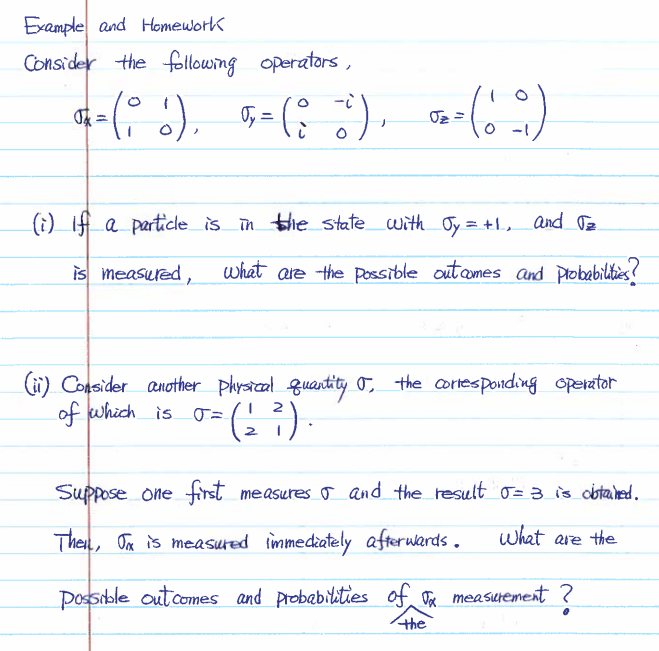 Example and Homework
Consider the following operators,
σx = ( 0 1 ; 1 0 ), σy = ( 0 -i ; i 0 ), σz = ( 1 0 ; 0 -1 )
(i) If a particle is in the state with σy = +1, and σz
is measured, what are the possible outcomes and probabilities?
(ii) Consider another physical quantity σ, the corresponding operator
of which is σ = ( 1 2 ; 2 1 ).
Suppose one first measures σ and the result σ = 3 is obtained.
Then, σx is measured immediately afterwards. What are the
possible outcomes and probabilities of the σx measurement?